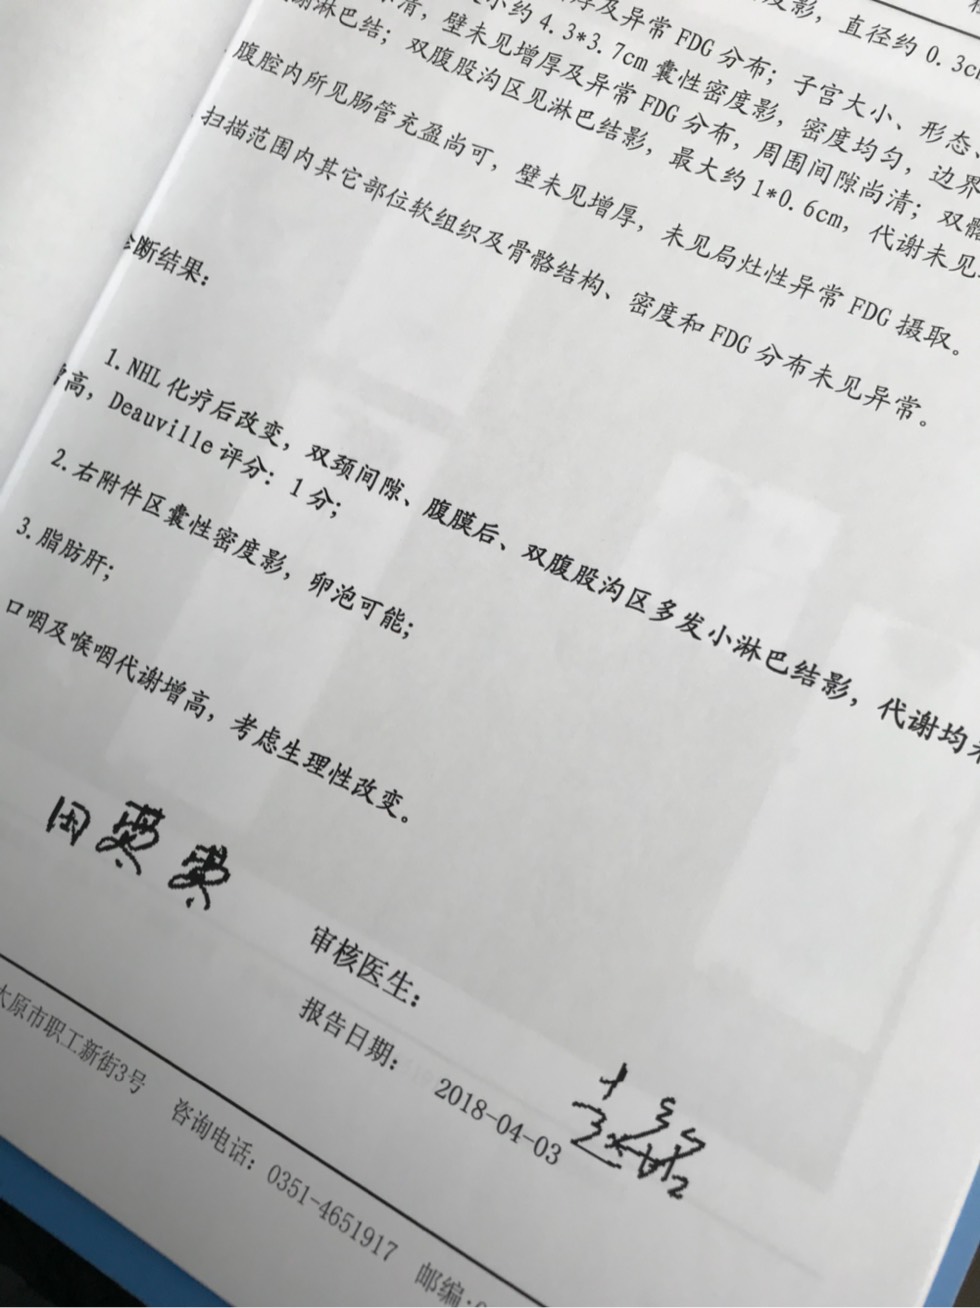 厚及异常 FDG 分布；子宫大小、形态、
约 4.3*3.7cm 囊性密度影，密度均匀，边界
清，壁未见增厚及异常 FDG 分布，周围间隙尚清；双髂
淋巴结；双腹股沟区见淋巴结影，最大约 1*0.6cm，代谢未见
度影，直径约 0.3c
腹腔内所见肠管充盈尚可，壁未见增厚，未见局灶性异常 FDG 摄取。
扫描范围内其它部位软组织及骨骼结构、密度和 FDG 分布未见异常。
诊断结果：
1. NHL 化疗后改变，双颈间隙、腹膜后、双腹股沟区多发小淋巴结影，代谢均未
增高，Deauville 评分：1 分；
2. 右附件区囊性密度影，卵泡可能；
3. 脂肪肝；
口咽及喉咽代谢增高，考虑生理性改变。
审核医生：
报告日期： 2018-04-03
太原市职工新街3号 咨询电话：0351-4651917 邮编: